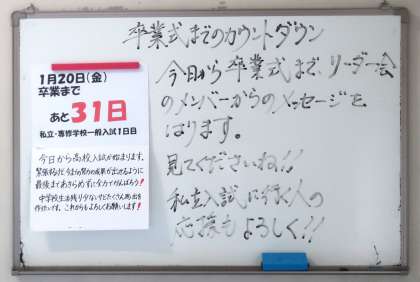 卒業式までのカウントダウン
今日から卒業式まで、リーダー会
のメンバーからのメッセージを
はります。
見てくださいね!!
私立入試にいく人の
応援もよろしく!!
1月20日(金)
卒業まで
あと31日
私立・専修学校一般入試1日目
今日から高校入試が始まります。
緊張するけど今までの努力の成果が出せるように
最後まであきらめずに全力でがんばろう!
中学校生活残り少ないけどたくさん思い出を
作りたいです。これからもよろしくお願いします!